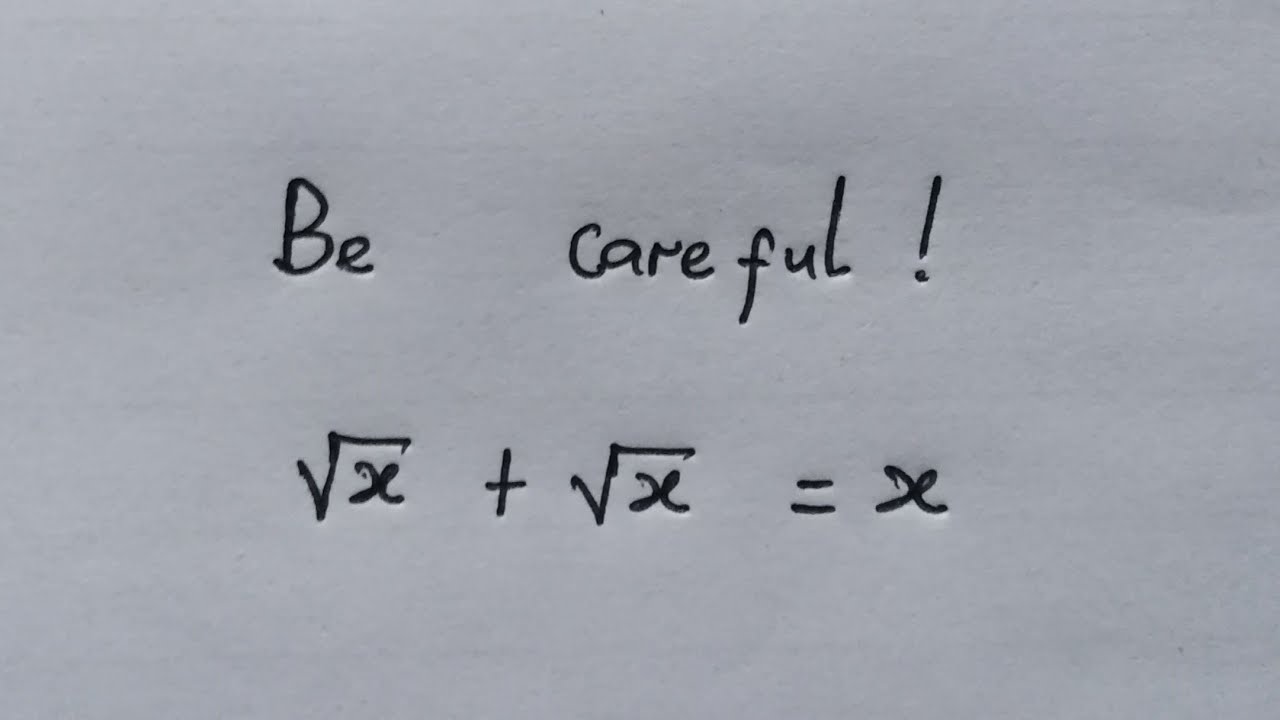 Be careful!
√x + √x = x